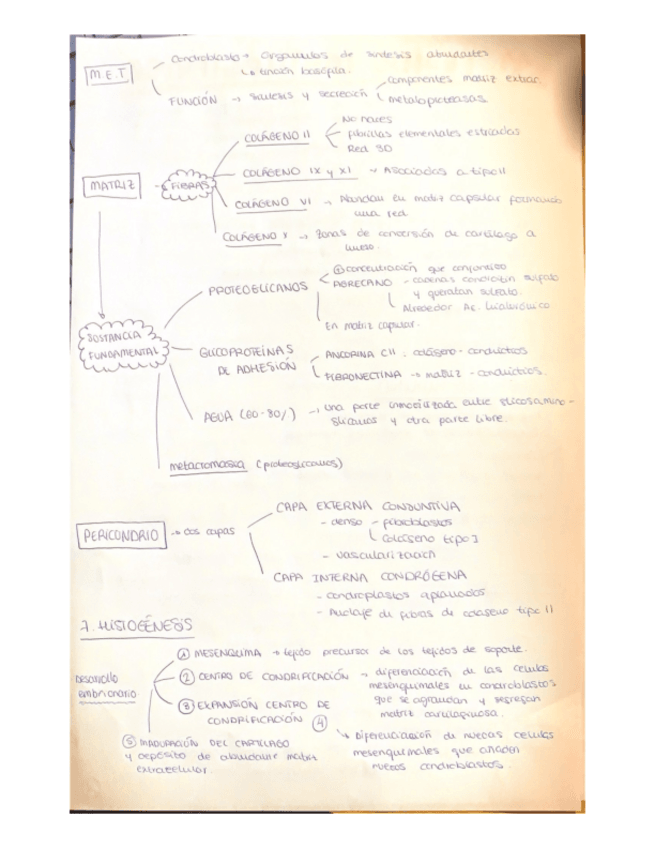 M.E.T
Condroblasto → Orgánulos de síntesis abundantes
↳ tinción basófila.
FUNCIÓN → Síntesis y secreción
componentes matriz extrac.
metaloproteasas.
MATRIZ → FIBRAS
COLÁGENO II
No haces
Fibrillas elementales estriadas
Red 3D
COLÁGENO IX y XI → Asociados a tipo II
COLÁGENO VI → Abundan en matriz capsular formando
una red
COLÁGENO X → Zonas de conversión de cartílago a
hueso.
SUSTANCIA
FUNDAMENTAL
PROTEOGLICANOS
AGRECANO - cadenas condroitín sulfato
y queratán sulfato.
Alrededor Ác. hialurónico
En matriz capsular.
GLICOPROTEÍNAS
DE ADHESIÓN
ANCORINA CII: colágeno - condrocitos
FIBRONECTINA → matriz - condrocitos.
AGUA (60-80%) → una parte inmovilizada entre glicosamino-
glicanos y otra parte libre.
metacromasia (proteoglicanos)
PERICONDRIO → dos capas
CAPA EXTERNA CONJUNTIVA
- denso - fibroblastos
Colágeno tipo I
- vascularización
CAPA INTERNA CONDRÓGENA
- condroblastos aplanados
- Anclaje de fibras de colágeno tipo II
7. HISTOGÉNESIS
Desarrollo
embrionario
① MESÉNQUIMA → tejido precursor de los tejidos de soporte.
② CENTRO DE CONDRIFICACIÓN → diferenciación de las células
mesenquimales en condroblastos
que se agrandan y segregan
matriz cartilaginosa.
③ EXPANSIÓN CENTRO DE
CONDRIFICACIÓN ④
↳ Diferenciación de nuevas células
mesenquimales que añaden
nuevos condroblastos.
⑤ MADURACIÓN DEL CARTÍLAGO
y depósito de abundante matriz
extracelular